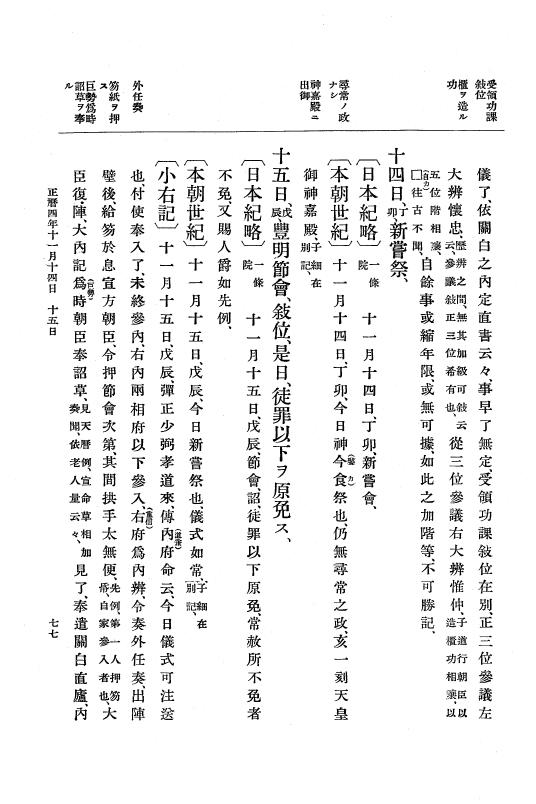 受領功課
敍位
櫃ヲ造ル
功
尋常ノ政
ナシ
神嘉殿ニ
出御
外任奏
笏紙ヲ押
ス
巨勢爲時
詔草ヲ奉
ル
儀了、依關白之內定直書云々、事早了無定、受領功課敍位在別、正三位參議左
大辨懷忠、歷辨之間、無其加級可敍云
云、參議敍正三位希有也、從三位參議右大辨惟仲、子道行朝臣以
造櫃功相兼、以
五位階相兼、
□往古不聞、自餘事或縮年限、或無可據、如此之加階等、不可勝記、
(自カ)
十四日、丁
卯、新嘗祭、
〔日本紀略〕一條
院 十一月十四日、丁卯、新嘗會、
〔本朝世紀〕十一月十四日、丁卯、今日神今食祭也、仍無尋常之政、亥一刻天皇
(嘗カ)
御神嘉殿、子細在
別記、
十五日、戊
辰、豐明節會、敍位、是日、徒罪以下ヲ原免ス、
〔日本紀略〕一條
院 十一月十五日、戊辰、節會、詔、徒罪以下原免、常赦所不免者
不免、又賜人爵如先例、
〔本朝世紀〕十一月十五日、戊辰、今日新嘗祭也、儀式如常、子細在
別記、
〔小右記〕十一月十五日、戊辰、彈正少弼孝道來、傳內府命云、今日儀式可注送
(道兼)
也、付使奉入了、未終參內、右內兩相府以下參入、右府爲內辨、令奏外任奏、出陣
(重信)
壁後、給笏於息宣方朝臣、令押節會次第、其間拱手太無便、先例、第一人押笏
自家參入者也、大
臣復陣、大內記爲時朝臣奉詔草、見天曆例、宣命草相加
奏聞、依老人量云々、見了、奉遣關白直廬、內
(巨勢)
正曆四年十一月十四日 十五日
七七